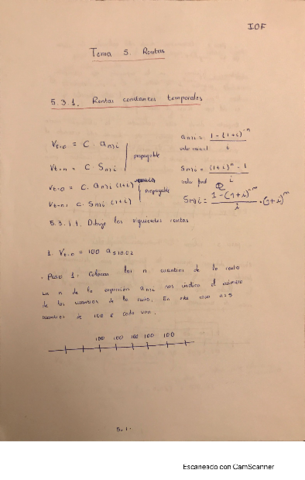 IOF
Tema 5. Rentas
5.3.1. Rentas constantes temporales
V t=0 = C · a n¬i
V t=n = C · S n¬i
prepagable
V t=0 = C · a n¬i (1+i)
V t=n = C · S n¬i (1+i)
prepagable
a n¬i = 1 - (1+i)^-n / i
valor
S n¬i = (1+i)^n - 1 / i
valor final
S n¬i = 1-(1+i)^-n / i · (1+i)^n
5.3.1.1. Dibuja las siguientes rentas
1. V t=0 = 100 a
· Paso 1: Colocar los n. cuantías de la renta
La n de la expresión a n¬i nos indica el número
de las cuantías de la renta. En este caso n=5
cuantías de 100 € cada una.
100 100 100 100 100
5.1.
Escaneado con CamScanner